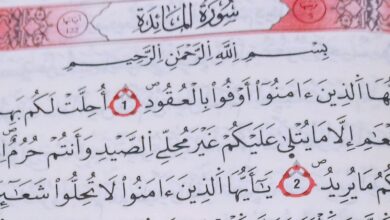 سُورَةُ المَائِدَة
بِسْمِ اللَّهِ الرَّحْمَٰنِ الرَّحِيمِ
الَّذِينَ ءَامَنُوٓاْ أَوْفُواْ بِالْعُقُودِ 1 أُحِلَّتْ لَكُم
إِلَّا مَا يُتْلَىٰ عَلَيْكُمْ غَيْرَ مُحِلِّي الصَّيْدِ وَأَنتُمْ حُرُمٌ
مَا يُرِيدُ 2 يَـٰٓأَيُّهَا الَّذِينَ ءَامَنُواْ لَا تُحِلُّواْ